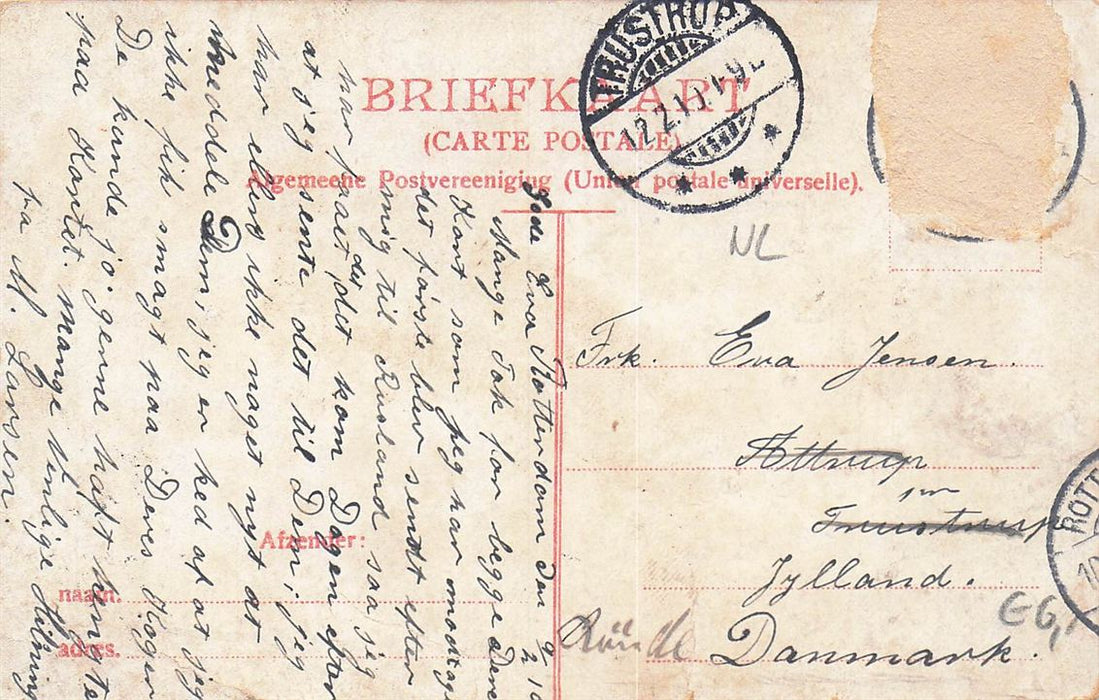 BRIEFKAART
(CARTE POSTALE)
Algemeene Postvereeniging (Union postale universelle).
TRUSTRUP
12.2.11 1-9E
NL
Søde Eva Rotterdam den 9/2 10
Mange Tak for begge Deres
Kort som jeg har modtaget
det første blev sendt efter
mig til Rusland saa jeg
har faaet det kom Dagen efter
at jeg sente det til Dem, jeg
har ellers ikke naget nyt at
meddele Dem, jeg er ked af at jeg
ikke fik smagt paa Deres Kager
De kunde jo gerne haft hengte
paa Kortet. mange venlige Hilsner
fra M. Larsen.
Frk. Eva Jensen.
Attrup
pr
Trustrup
Jylland.
Rønde
Danmark.
Afzender:
naam.
adres.
ROTT
10